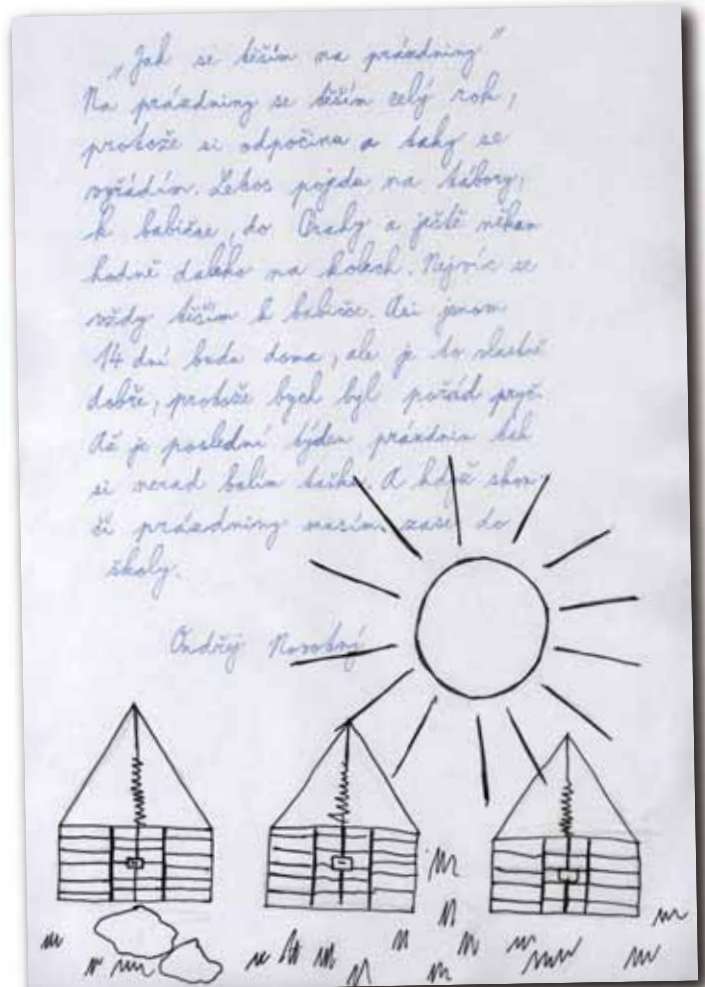 „Jak se těším na prázdniny"
Na prázdniny se těším celý rok,
protože si odpočinu a taky se
vyřádím. Letos pojedu na tábory,
k babičce, do Prahy a ještě někam
hodně daleko na kolech. Nejvíc se
vždy těším k babičce. Asi jenom
14 dní budu doma, ale je to vlastně
dobře, protože bych byl pořád pryč.
Až je poslední týden prázdnin tak
si nerad balím tašku. A když skon-
čí prázdniny musím zase do
školy.
Ondřej Novotný